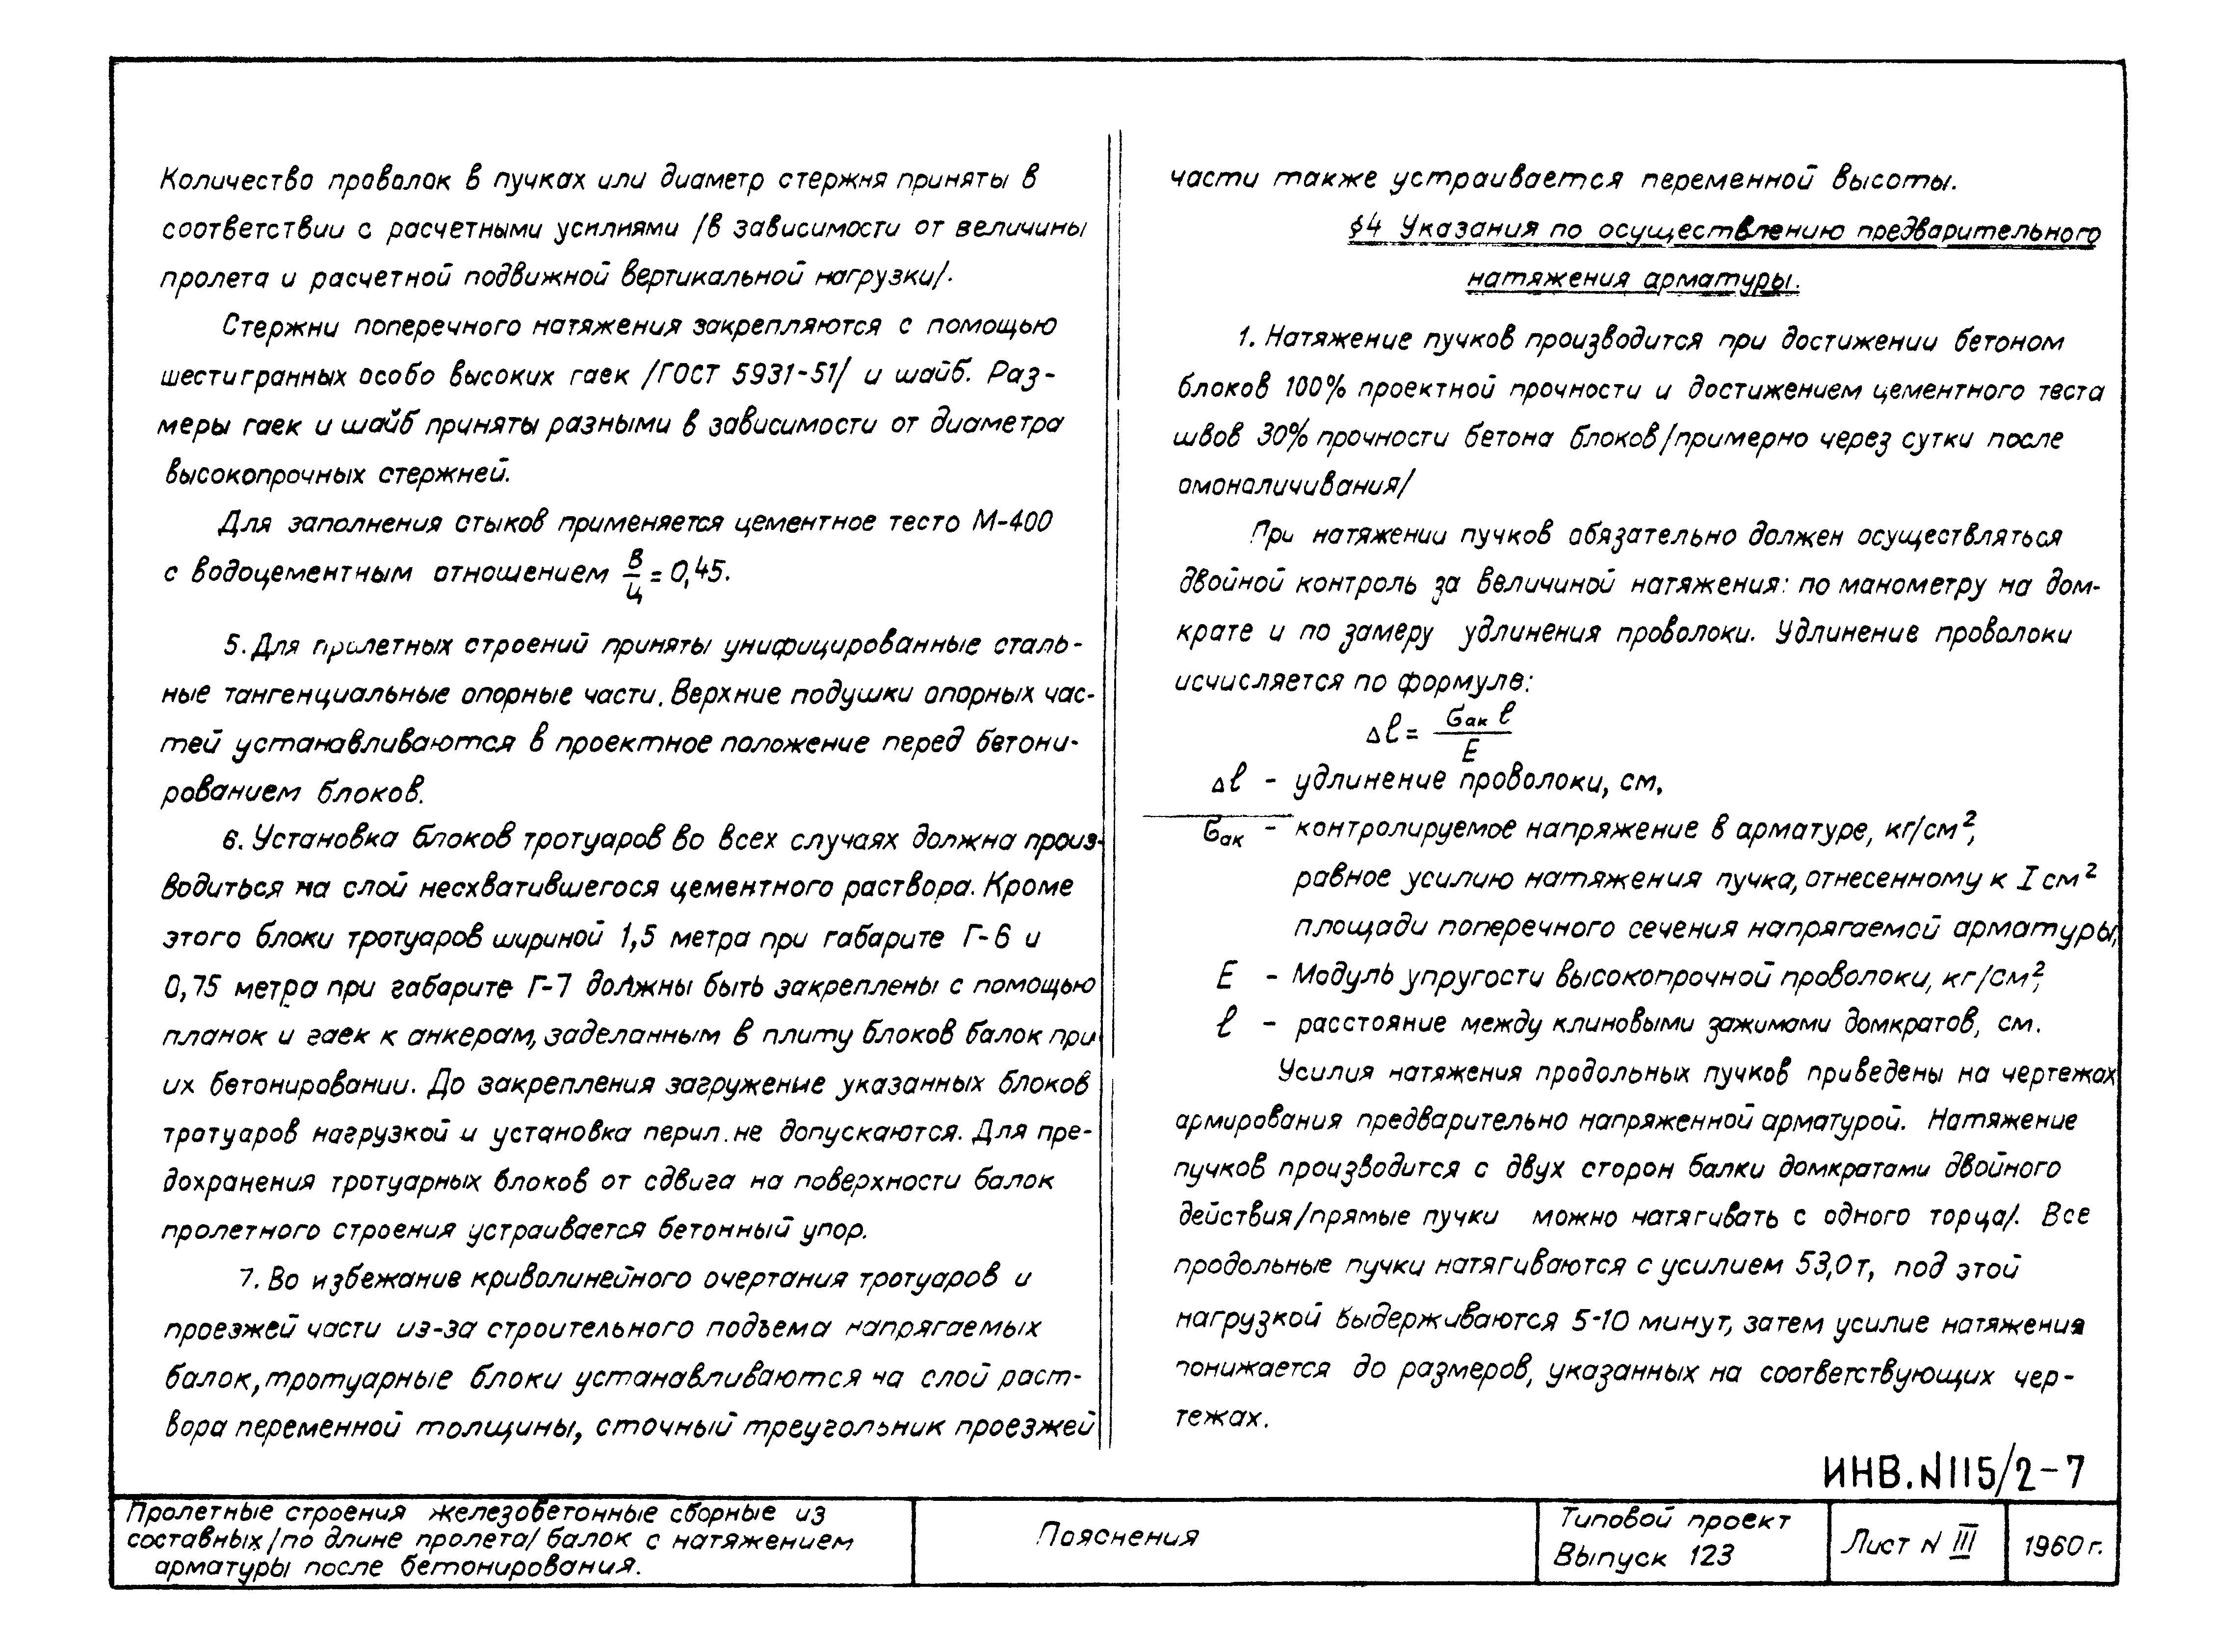 Количество проволок в пучках или диаметр стержня приняты в
соответствии с расчетными усилиями /в зависимости от величины
пролета и расчетной подвижной вертикальной нагрузки/.
Стержни поперечного натяжения закрепляются с помощью
шестигранных особо высоких гаек /ГОСТ 5931-51/ и шайб. Раз-
меры гаек и шайб приняты разными в зависимости от диаметра
высокопрочных стержней.
Для заполнения стыков применяется цементное тесто М-400
с водоцементным отношением В/Ц = 0,45.
5. Для пролетных строений приняты унифицированные сталь-
ные тангенциальные опорные части. Верхние подушки опорных час-
тей устанавливаются в проектное положение перед бетони-
рованием блоков.
6. Установка блоков тротуаров во всех случаях должна произ-
водиться на слой несхватившегося цементного раствора. Кроме
этого блоки тротуаров шириной 1,5 метра при габарите Г-6 и
0,75 метра при габарите Г-7 должны быть закреплены с помощью
планок и гаек к анкерам, заделанным в плиту блоков балок при
их бетонировании. До закрепления загружение указанных блоков
тротуаров нагрузкой и установка перил не допускаются. Для пре-
дохранения тротуарных блоков от сдвига на поверхности балок
пролетного строения устраивается бетонный упор.
7. Во избежание криволинейного очертания тротуаров и
проезжей части из-за строительного подъема напрягаемых
балок, тротуарные блоки устанавливаются на слой раст-
вора переменной толщины, сточный треугольник проезжей
части также устраивается переменной высоты.
§4 Указания по осуществлению предварительного
натяжения арматуры.
1. Натяжение пучков производится при достижении бетоном
блоков 100% проектной прочности и достижением цементного теста
швов 30% прочности бетона блоков /примерно через сутки после
омоноличивания/
При натяжении пучков обязательно должен осуществляться
двойной контроль за величиной натяжения: по манометру на дом-
крате и по замеру удлинения проволоки. Удлинение проволоки
исчисляется по формуле:
Δℓ = σак ℓ / E
Δℓ - удлинение проволоки, см,
σак - контролируемое напряжение в арматуре, кг/см²,
равное усилию натяжения пучка, отнесенному к I см²
площади поперечного сечения напрягаемой арматуры,
E - Модуль упругости высокопрочной проволоки, кг/см²,
ℓ - расстояние между клиновыми зажимами домкратов, см.
Усилия натяжения продольных пучков приведены на чертежах
армирования предварительно напряженной арматурой. Натяжение
пучков производится с двух сторон балки домкратами двойного
действия /прямые пучки можно натягивать с одного торца/. Все
продольные пучки натягиваются с усилием 53,0 т, под этой
нагрузкой выдерживаются 5-10 минут, затем усилие натяжения
понижается до размеров, указанных на соответствующих чер-
тежах.
ИНВ.N115/2-7
Пролетные строения железобетонные сборные из
составных /по длине пролета/ балок с натяжением
арматуры после бетонирования.
Пояснения
Типовой проект
Выпуск 123
Лист N III
1960 г.